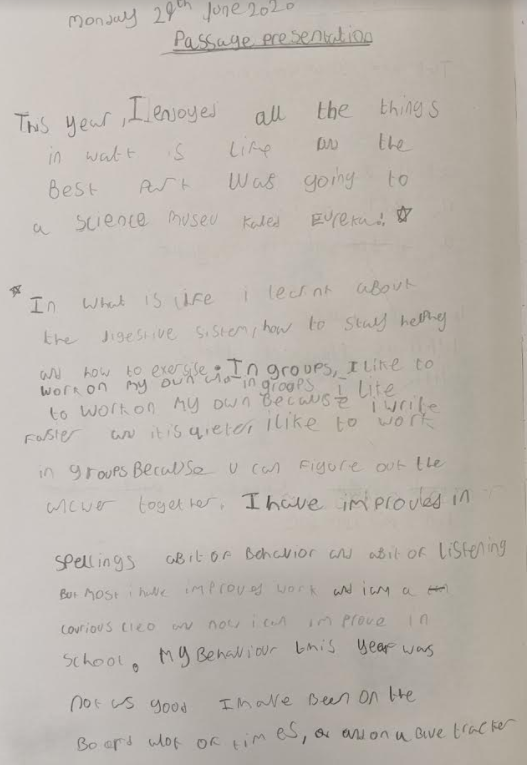 Monday 29th June 2020
Passage presentation
This year, I enjoyed all the things
in watt is life and the
Best Part was going to
a science museu kaled Eureka!
In what is life i learnt about
the digestive sistem, how to stay helthy
and how to exercise. In groups, I like to
work on my own and in groops i like
to work on my own Because i write
Faster and it is quieter i like to work
in groups Because u can Figure out the
answer together. I have improved in
spellings abit of Behavior and abit of listening
But most i have improved work and i am a
courious cleo and now i can improve in
school. My Behaviour this year was
not as good I have Been on the
Board alot of times,